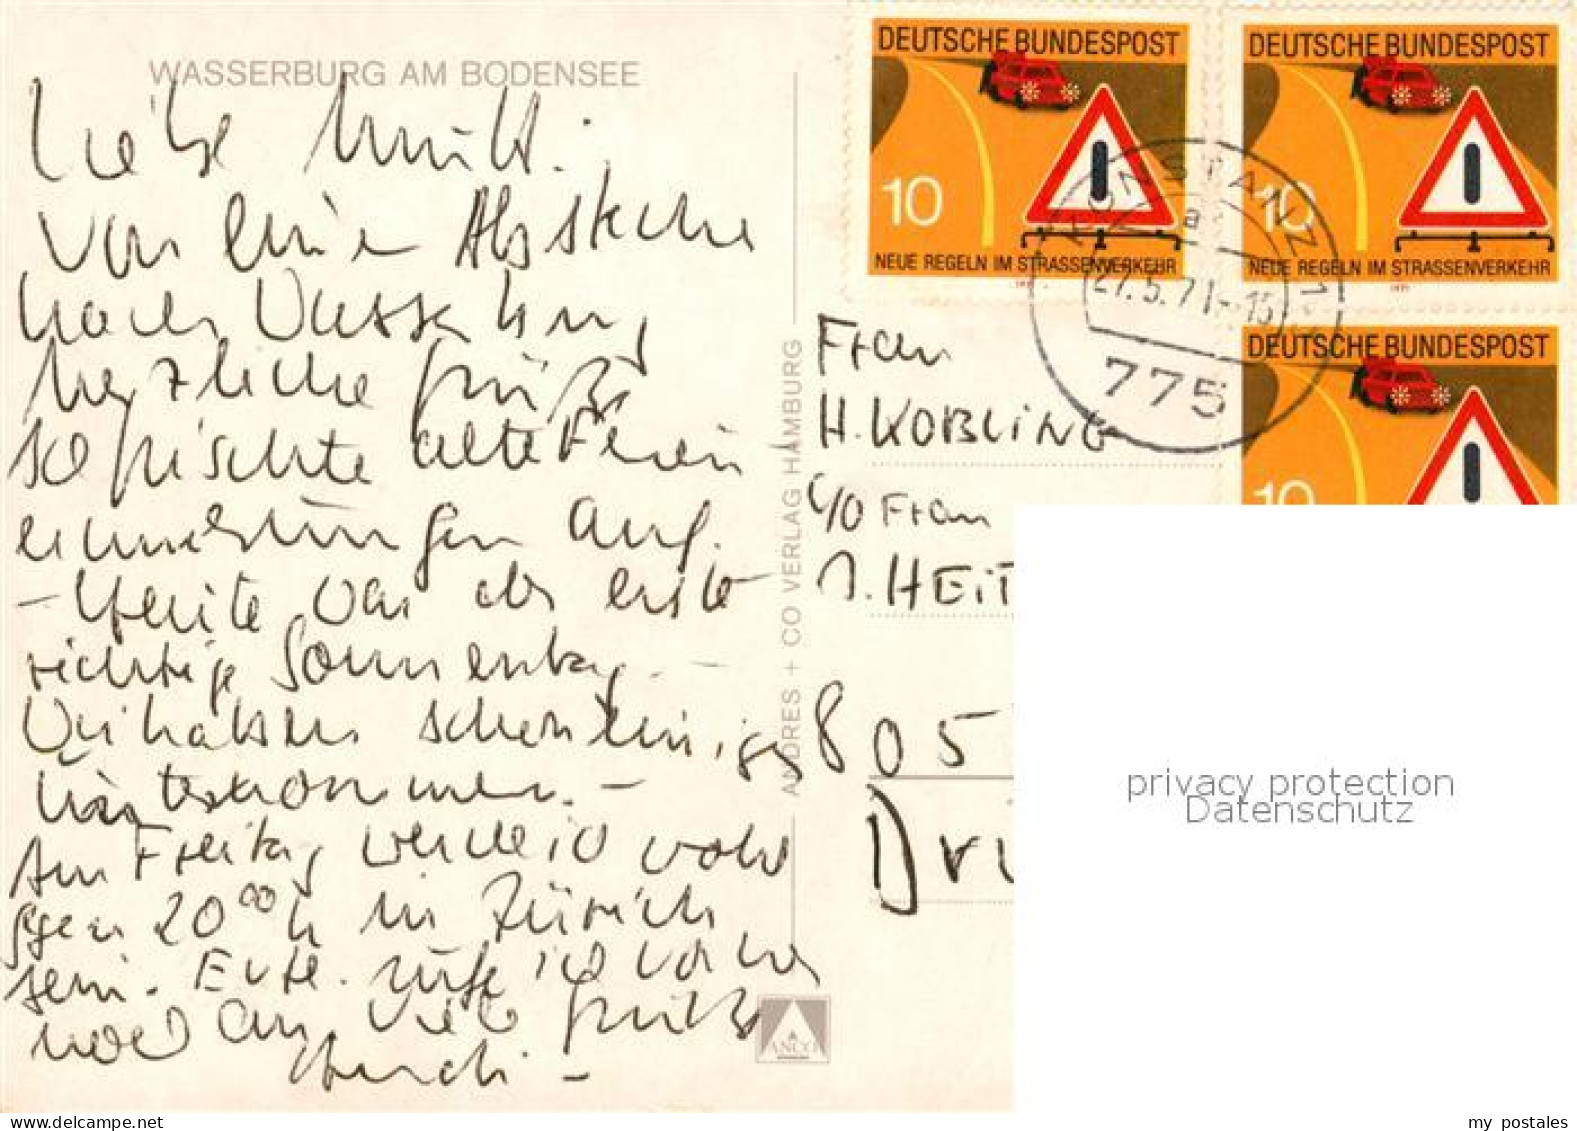 WASSERBURG AM BODENSEE
Liebe Mutti.
von einem Abstecher
nach Wasserburg
herzliche Grüße
so frischte alte Ferien
erinnerungen auf.
– Heute war der erste
richtige Sonnentag. –
Wir haben schon einiges
hinterkommen. –
Am Freitag werde ich wohl
gegen 20⁰⁰ h in Zürich
sein. Evtl. rufe ich vorher
noch an. Viele Grüße
ANDRES + CO VERLAG HAMBURG
ANCO
DEUTSCHE BUNDESPOST
10
NEUE REGELN IM STRASSENVERKEHR
1971
DEUTSCHE BUNDESPOST
10
NEUE REGELN IM STRASSENVERKEHR
1971
DEUTSCHE BUNDESPOST
10
KONSTANZ 1
a
27.5.71-15
775
Frau
H. KOBLING
c/o Frau
J. HEIT
805
Dri
privacy protection
Datenschutz
my postales